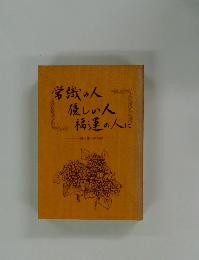 常識の人
優しい人
福運の人に